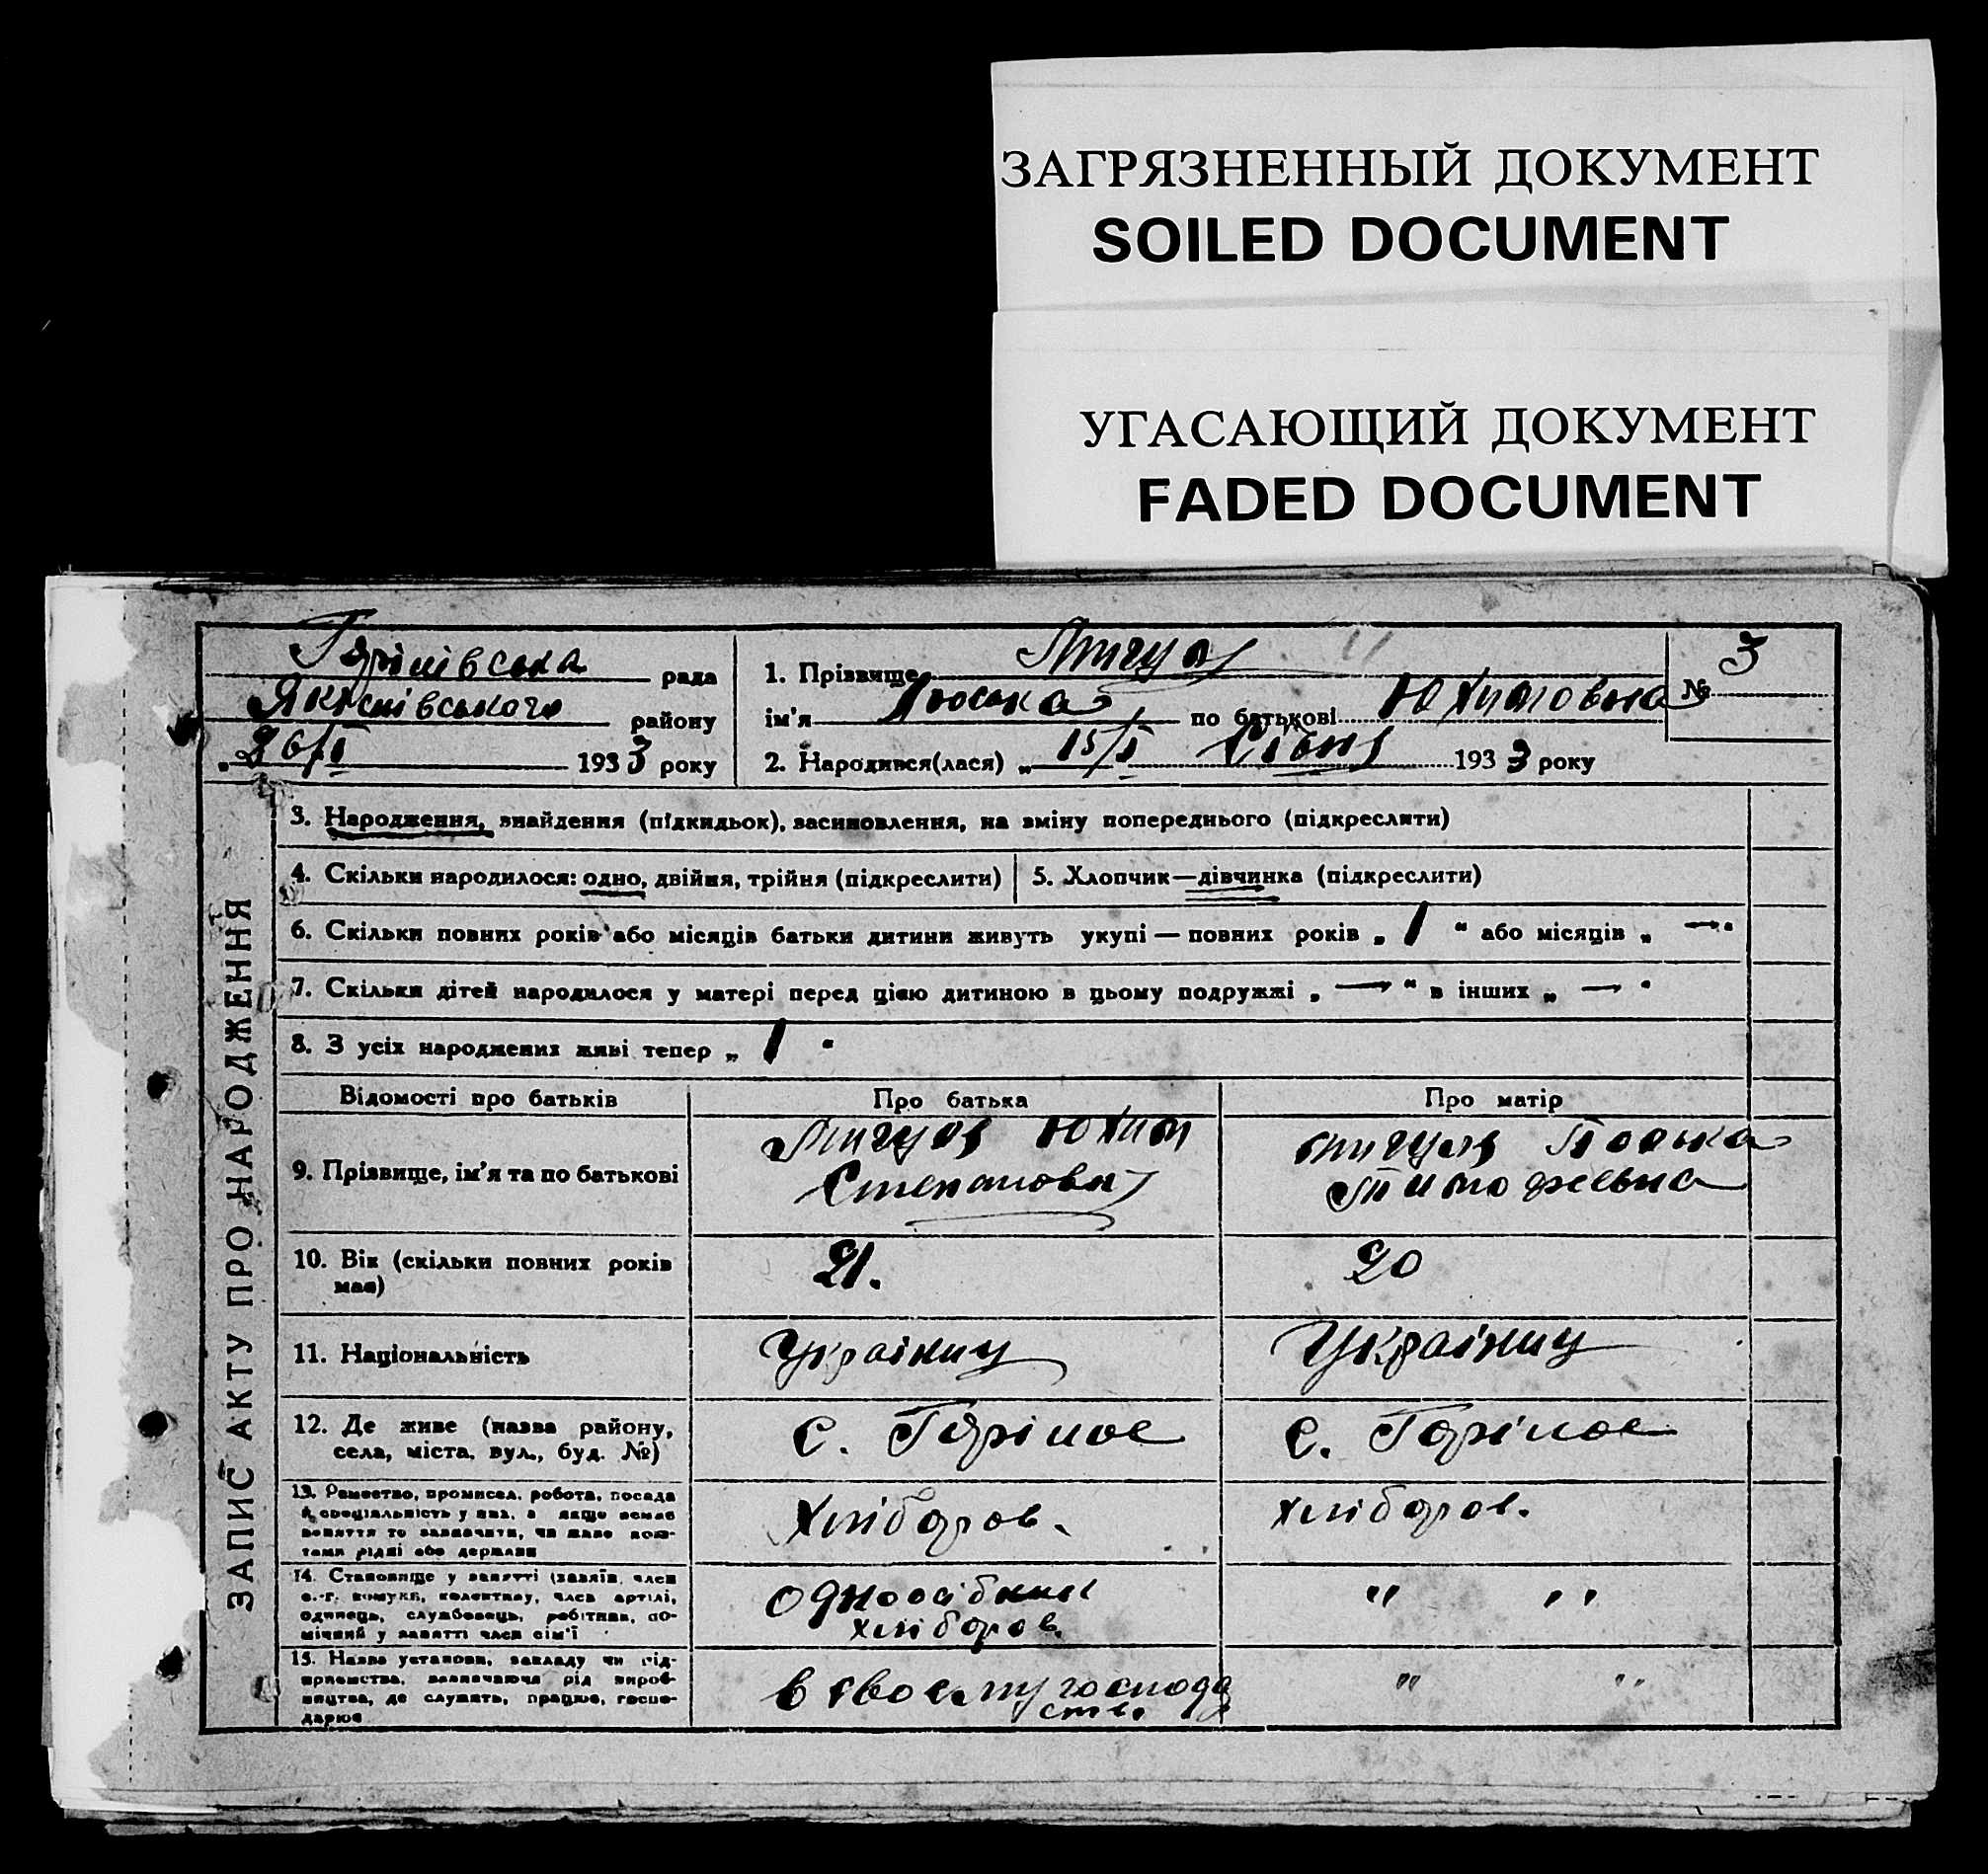 ЗАГРЯЗНЕННЫЙ ДОКУМЕНТ
SOILED DOCUMENT
УГАСАЮЩИЙ ДОКУМЕНТ
FADED DOCUMENT
ЗАПИС АКТУ ПРО НАРОДЖЕННЯ
Горілівська рада
району
26/I 1933 року
1. Прізвище Мигуля
ім'я по батькові Юхимовна
№ 3
2. Народився(лася) „ 15/I Січня 1933 року
3. Народження, знайдення (підкидьок), засиновлення, на зміну попереднього (підкреслити)
4. Скільки народилося: одно, двійня, трійня (підкреслити)
5. Хлопчик—дівчинка (підкреслити)
6. Скільки повних років або місяців батьки дитини живуть укупі — повних років „ 1 “ або місяців „ — “
7. Скільки дітей народилося у матері перед цією дитиною в цьому подружжі „ — “ в інших „ — “
8. З усіх народжених живі тепер „ 1 “
Відомості про батьків
Про батька
Про матір
9. Прізвище, ім'я та по батькові
Мигуля Юхим
Степанович
Мигуля
Тимофеевна
10. Вік (скільки повних років
має)
21.
20
11. Національність
Українц
Українц
12. Де живе (назва району,
села, міста, вул., буд. №)
с. Горілое
с. Горілое
13. Ремество, промисел, робота, посада
й спеціяльність у них, а якщо немає
заняття то зазначити, чи живе кош-
тами рідні або держави
Хлібороб.
хлібороб.
14. Становище у занятті (хазяїн, член
с.-г. комуни, колективу, член артілі,
одинець, службовець, робітник, по-
мічний у занятті член сім'ї
одноосібний
хлібороб.
" "
15. Назва установи, закладу чи під-
приємства, зазначаючи рід вироб-
ництва, де служить, працює, госпо-
дарює
в своєму господар
ств.
" "